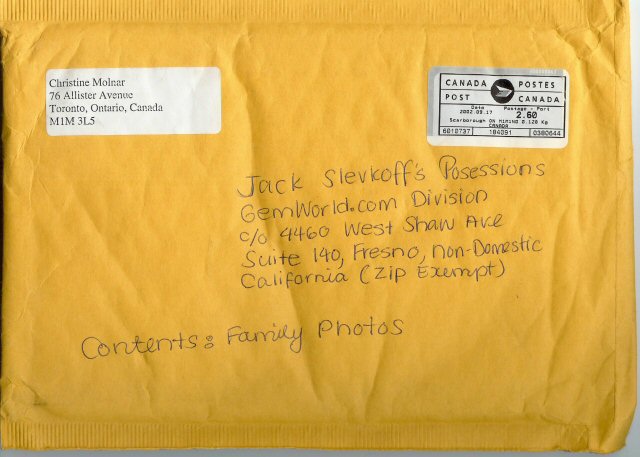 Christine Molnar
76 Allister Avenue
Toronto, Ontario, Canada
M1M 3L5
CANADA POSTES
POST CANADA
Date Postage - Port
2002.09.17 2.60
Scarborough ON M1M1N0 0.128 Kg
CANADA
6010737 184091 0380644
Jack Slevkoff's Posessions
GemWorld.com Division
c/o 4460 West Shaw Ave
Suite 140, Fresno, non-Domestic
California (Zip Exempt)
Contents: Family Photos